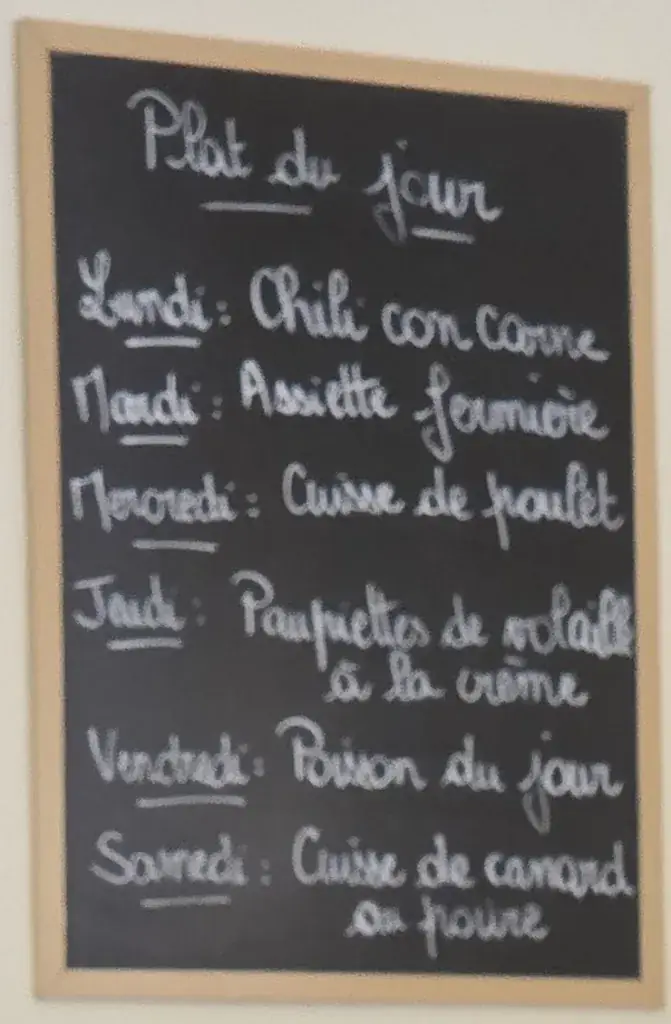 Plat du jour
Lundi : Chili con carne
Mardi : Assiette fermière
Mercredi : Cuisse de poulet
Jeudi : Paupiettes de volaille
à la crème
Vendredi : Poisson du jour
Samedi : Cuisse de canard
au poivre